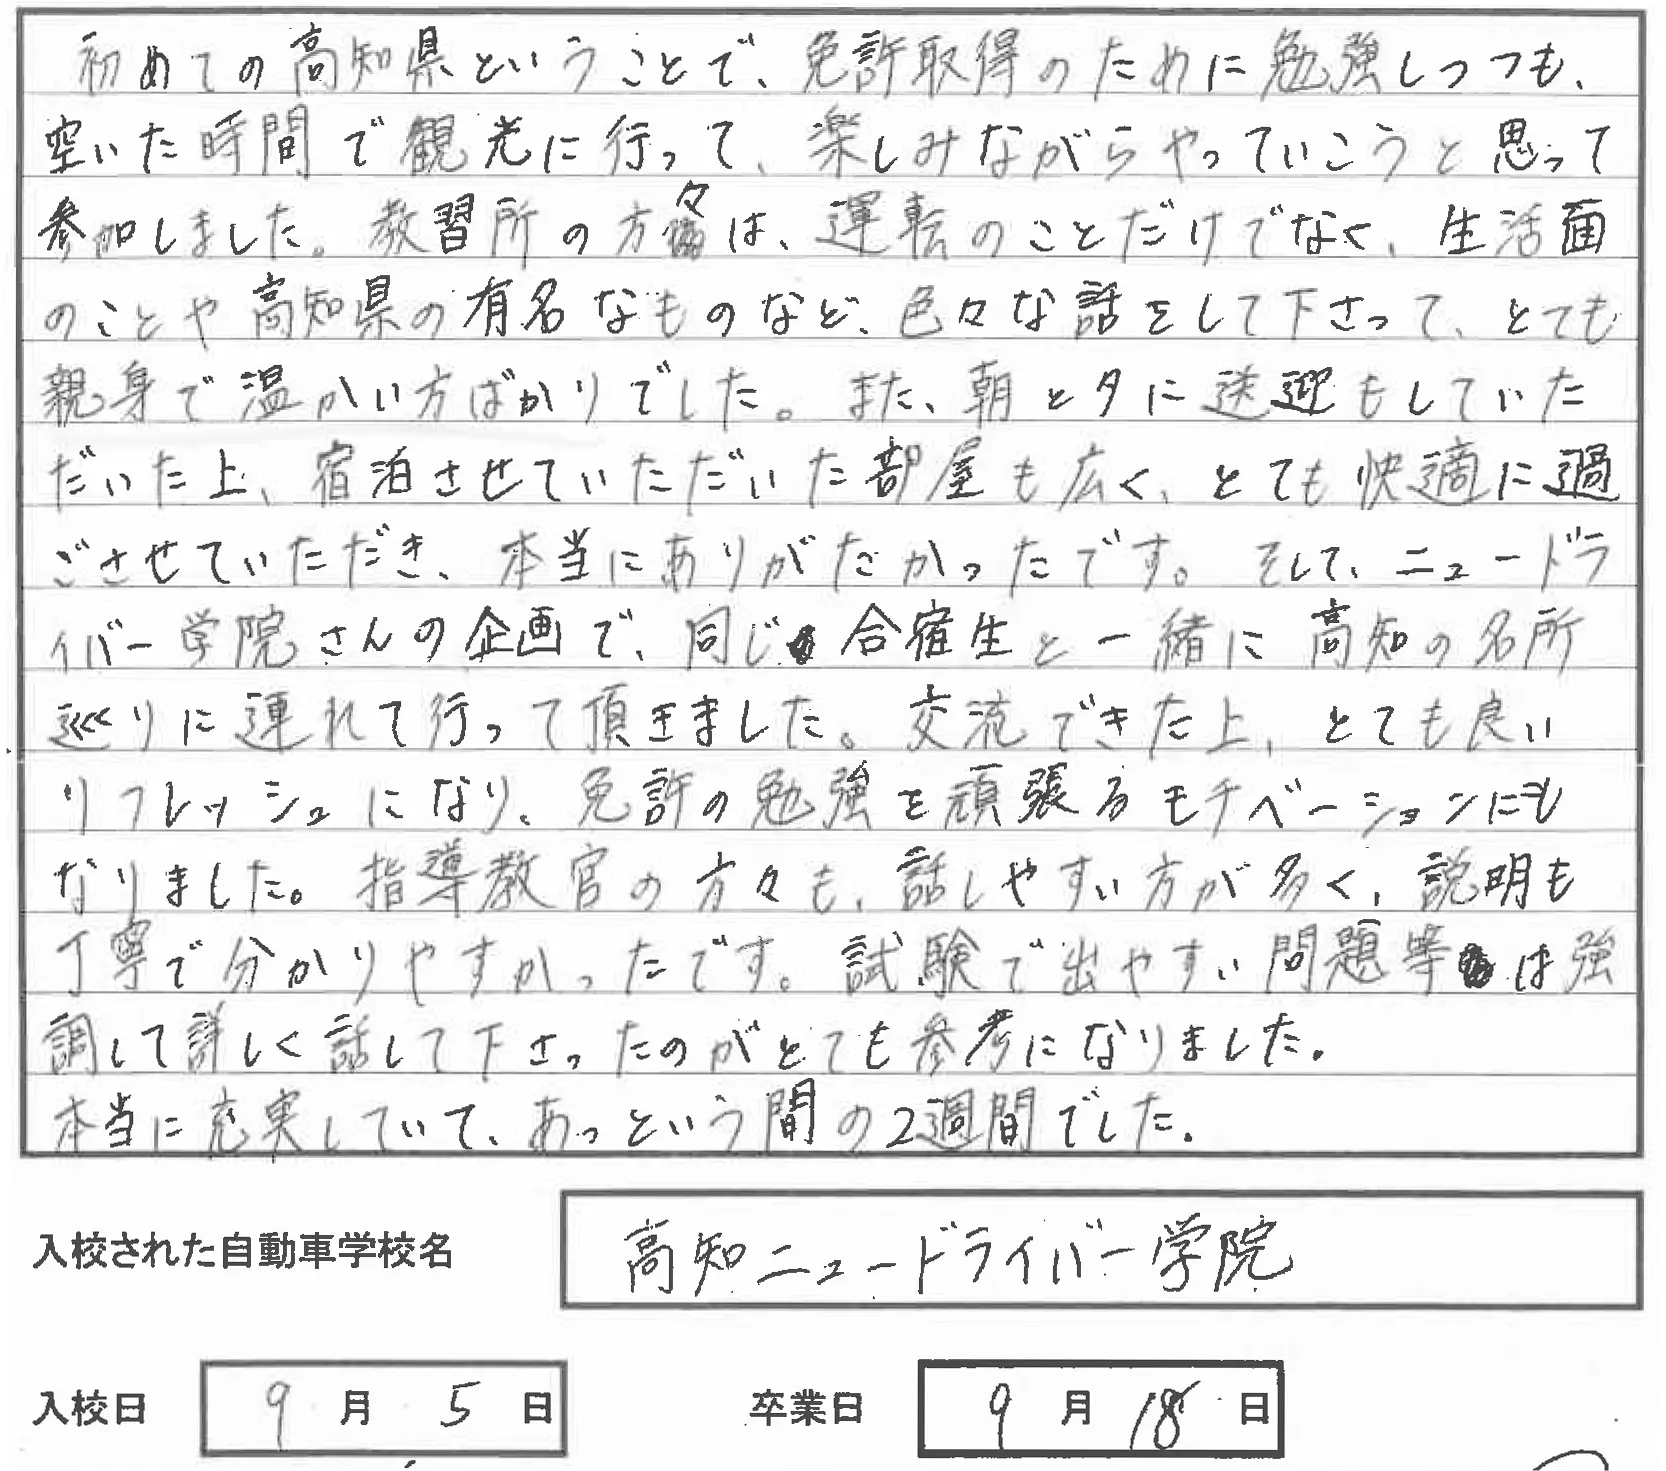 初めての高知県ということで、免許取得のために勉強しつつも、
空いた時間で観光に行って、楽しみながらやっていこうと思って
参加しました。教習所の方々は、運転のことだけでなく、生活面
のことや高知県の有名なものなど、色々な話をして下さって、とても
親身で温かい方ばかりでした。また、朝と夕に送迎もしていた
だいた上、宿泊させていただいた部屋も広く、とても快適に過
ごさせていただき、本当にありがたかったです。そして、ニュードラ
イバー学院さんの企画で、同じ合宿生と一緒に高知の名所
巡りに連れて行って頂きました。交流できた上、とても良い
リフレッシュになり、免許の勉強を頑張るモチベーションにも
なりました。指導教官の方々も、話しやすい方が多く、説明も
丁寧で分かりやすかったです。試験で出やすい問題等は強
調して詳しく話して下さったのがとても参考になりました。
本当に充実していて、あっという間の2週間でした。
入校された自動車学校名 高知ニュードライバー学院
入校日 9月5日 卒業日 9月18日